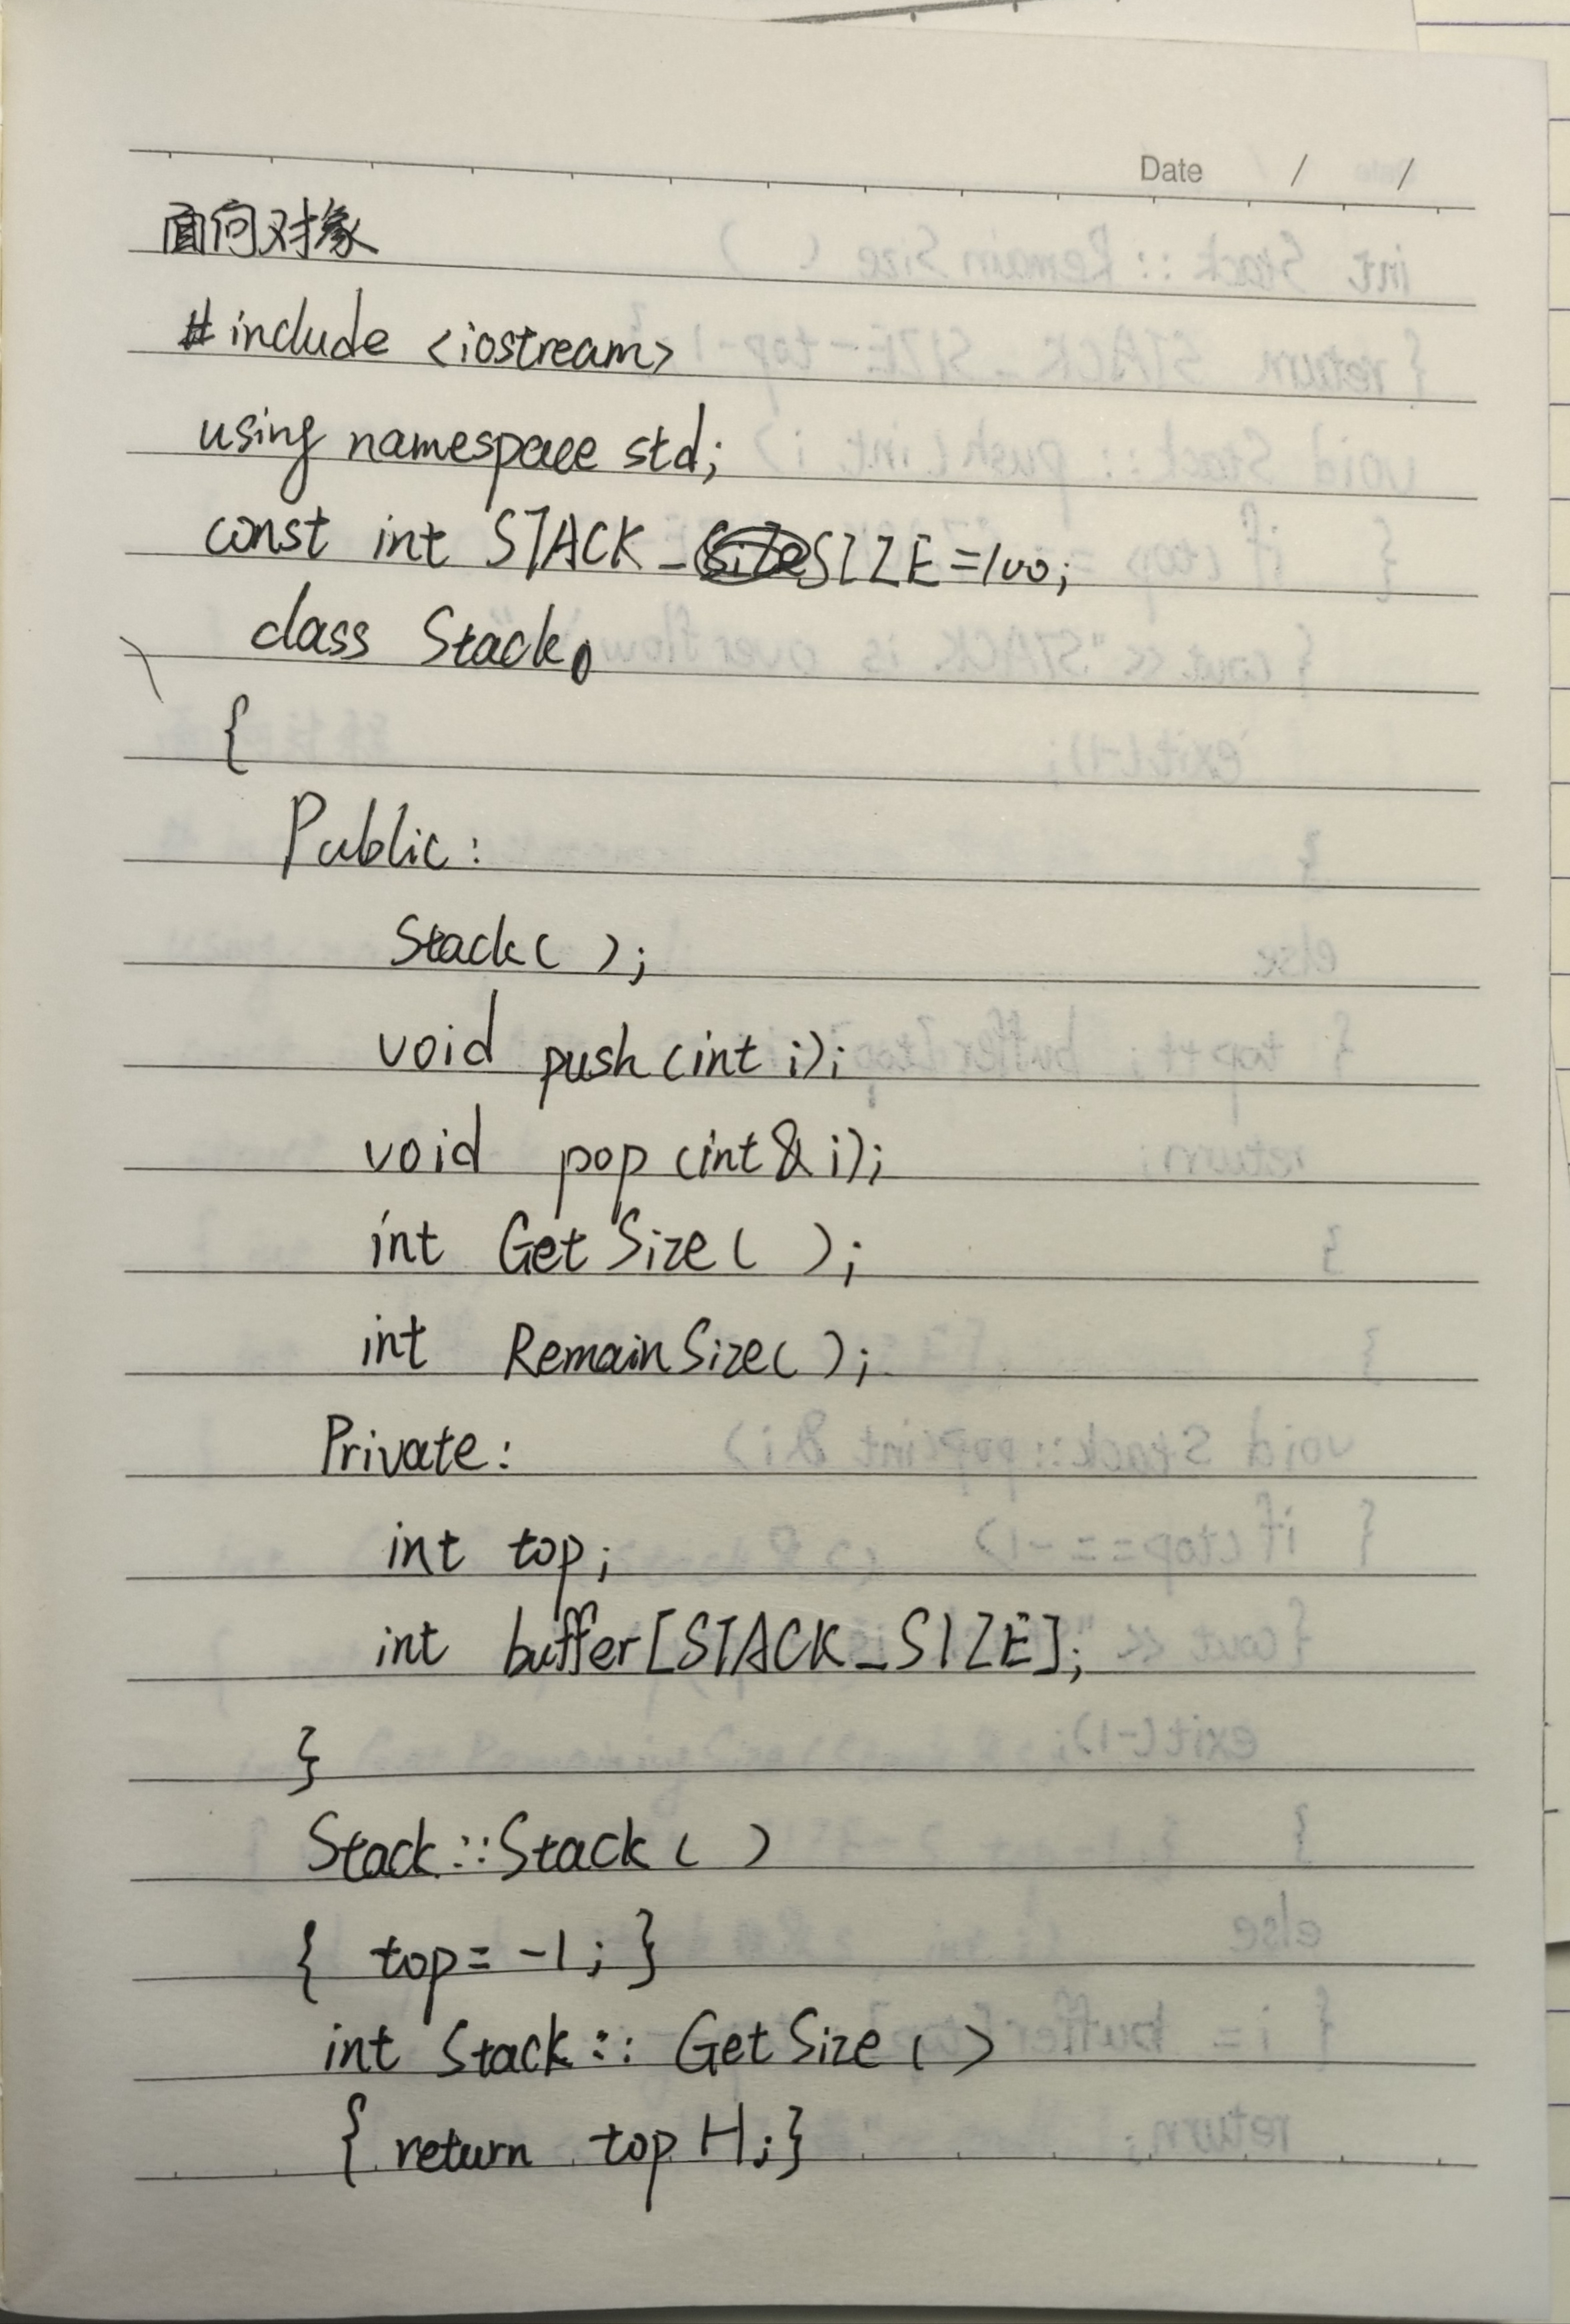 Date / /
面向对象
#include <iostream>
using namespace std;
const int STACK_SIZE=100;
class Stack
{
Public:
Stack( );
void push(int i);
void pop(int& i);
int GetSize( );
int RemainSize( );
Private:
int top;
int buffer[STACK_SIZE];
}
Stack::Stack( )
{ top= -1; }
int Stack:: GetSize( )
{ return top+1;}